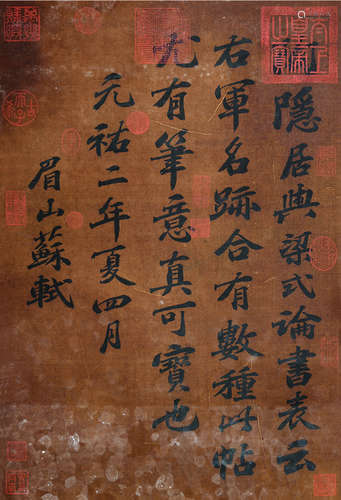 隱居與梁武論書表云
右軍名跡合有數種此帖
尤有筆意真可寶也
元祐二年夏四月
眉山蘇軾